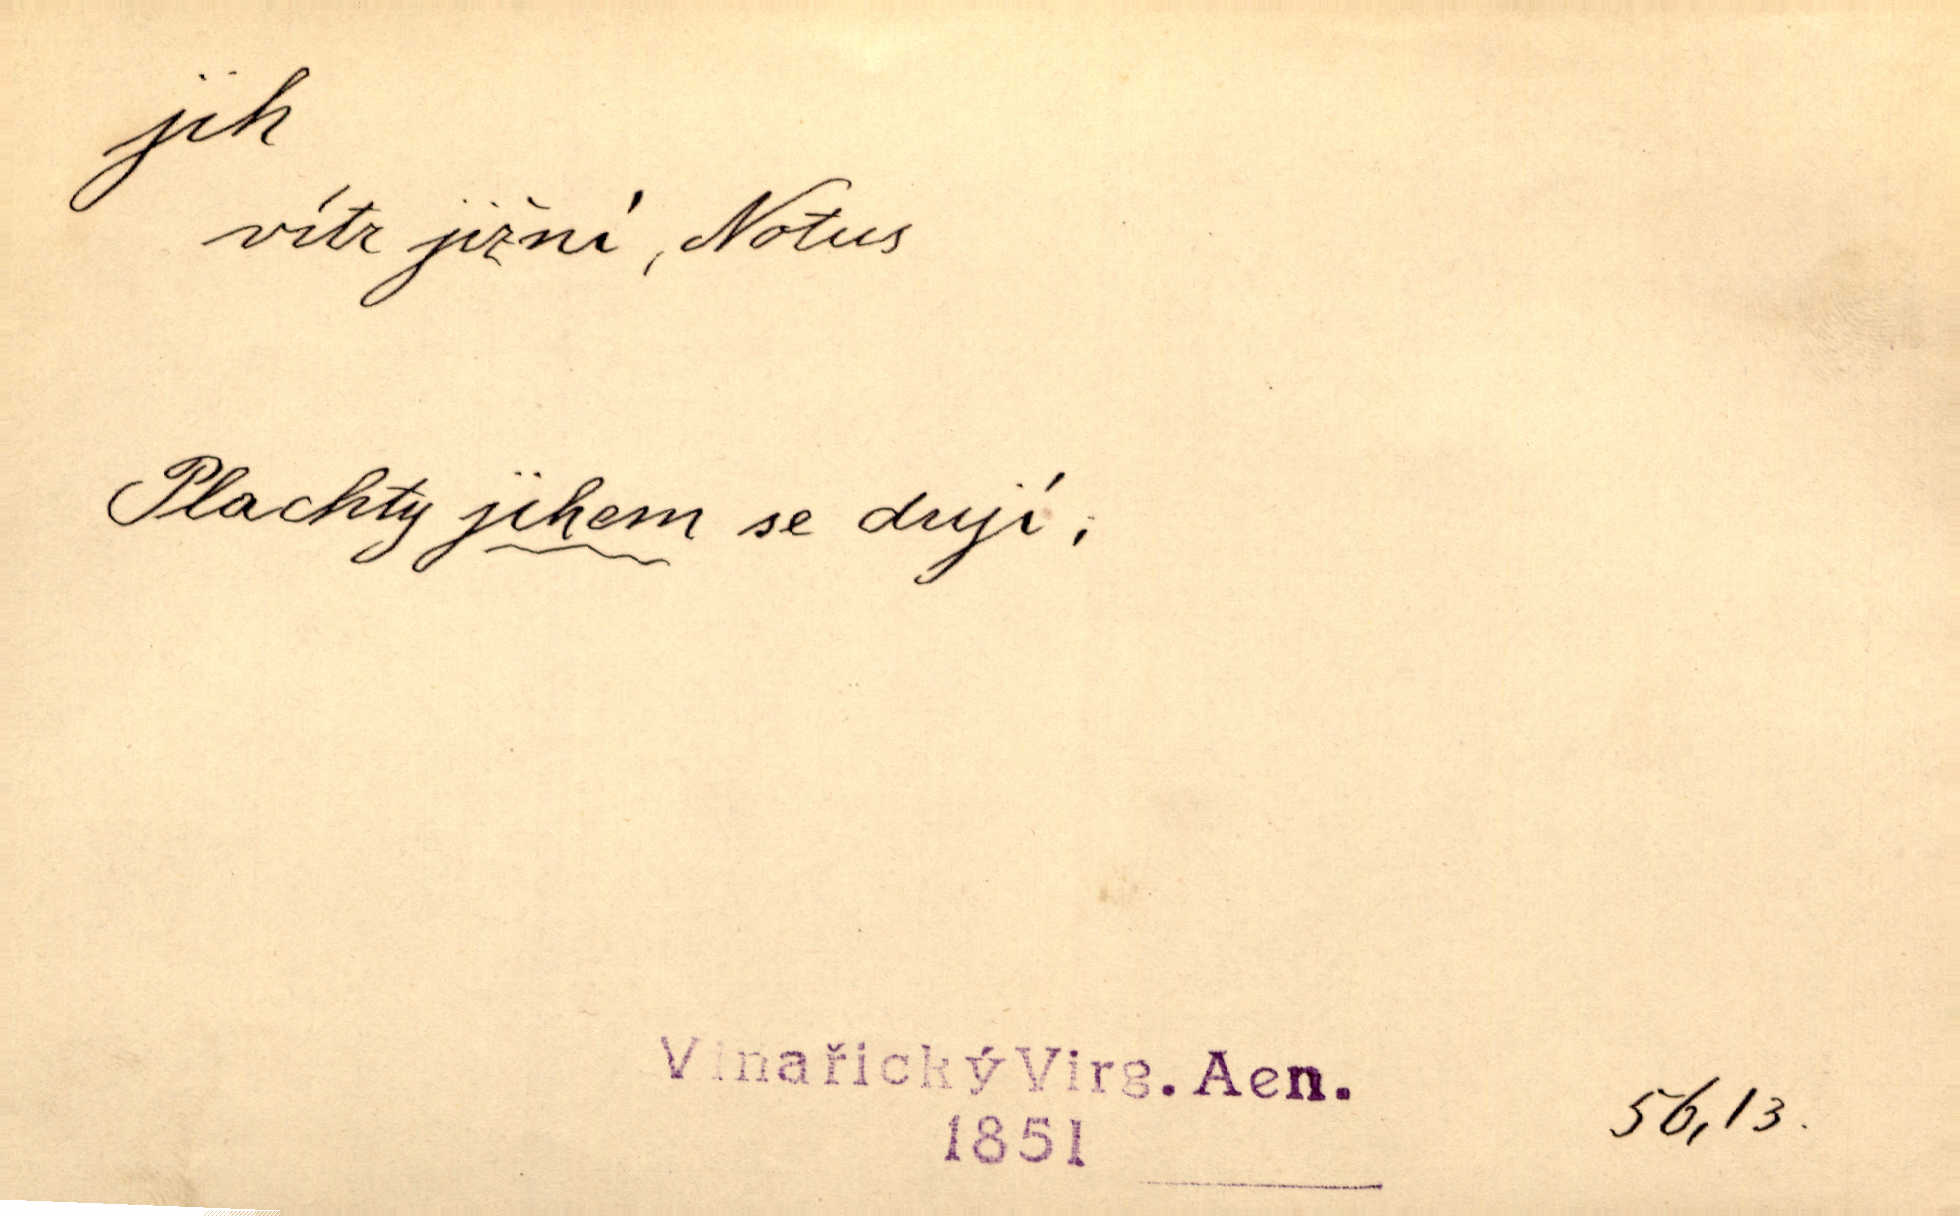 jih
vítr jižní, Notus
Plachty jihem se dují;
Vinařický Virg. Aen.
1851
56,13.